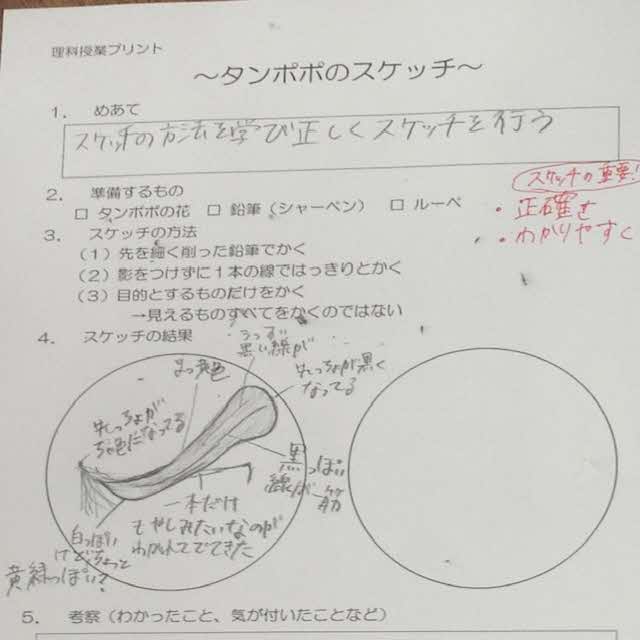 理科授業プリント
～タンポポのスケッチ～
1. めあて
スケッチの方法を学び正しくスケッチを行う
2. 準備するもの
□ タンポポの花 □ 鉛筆（シャーペン） □ ルーペ
スケッチの重要!
・正確さ
・わかりやすく
3. スケッチの方法
（1）先を細く削った鉛筆でかく
（2）影をつけずに1本の線ではっきりとかく
（3）目的とするものだけをかく
→見えるものすべてをかくのではない
4. スケッチの結果
うっすい
黒い線が
まっ黄色
先っちょが黒く
なってる
先っちょが
ちゃ色になってる
黒っぽい
線が一筋
一本だけ
もやしみたいなのが
わかれてでてきた
白っぽい
けどちょっと
黄緑っぽい?
5. 考察（わかったこと、気が付いたことなど）